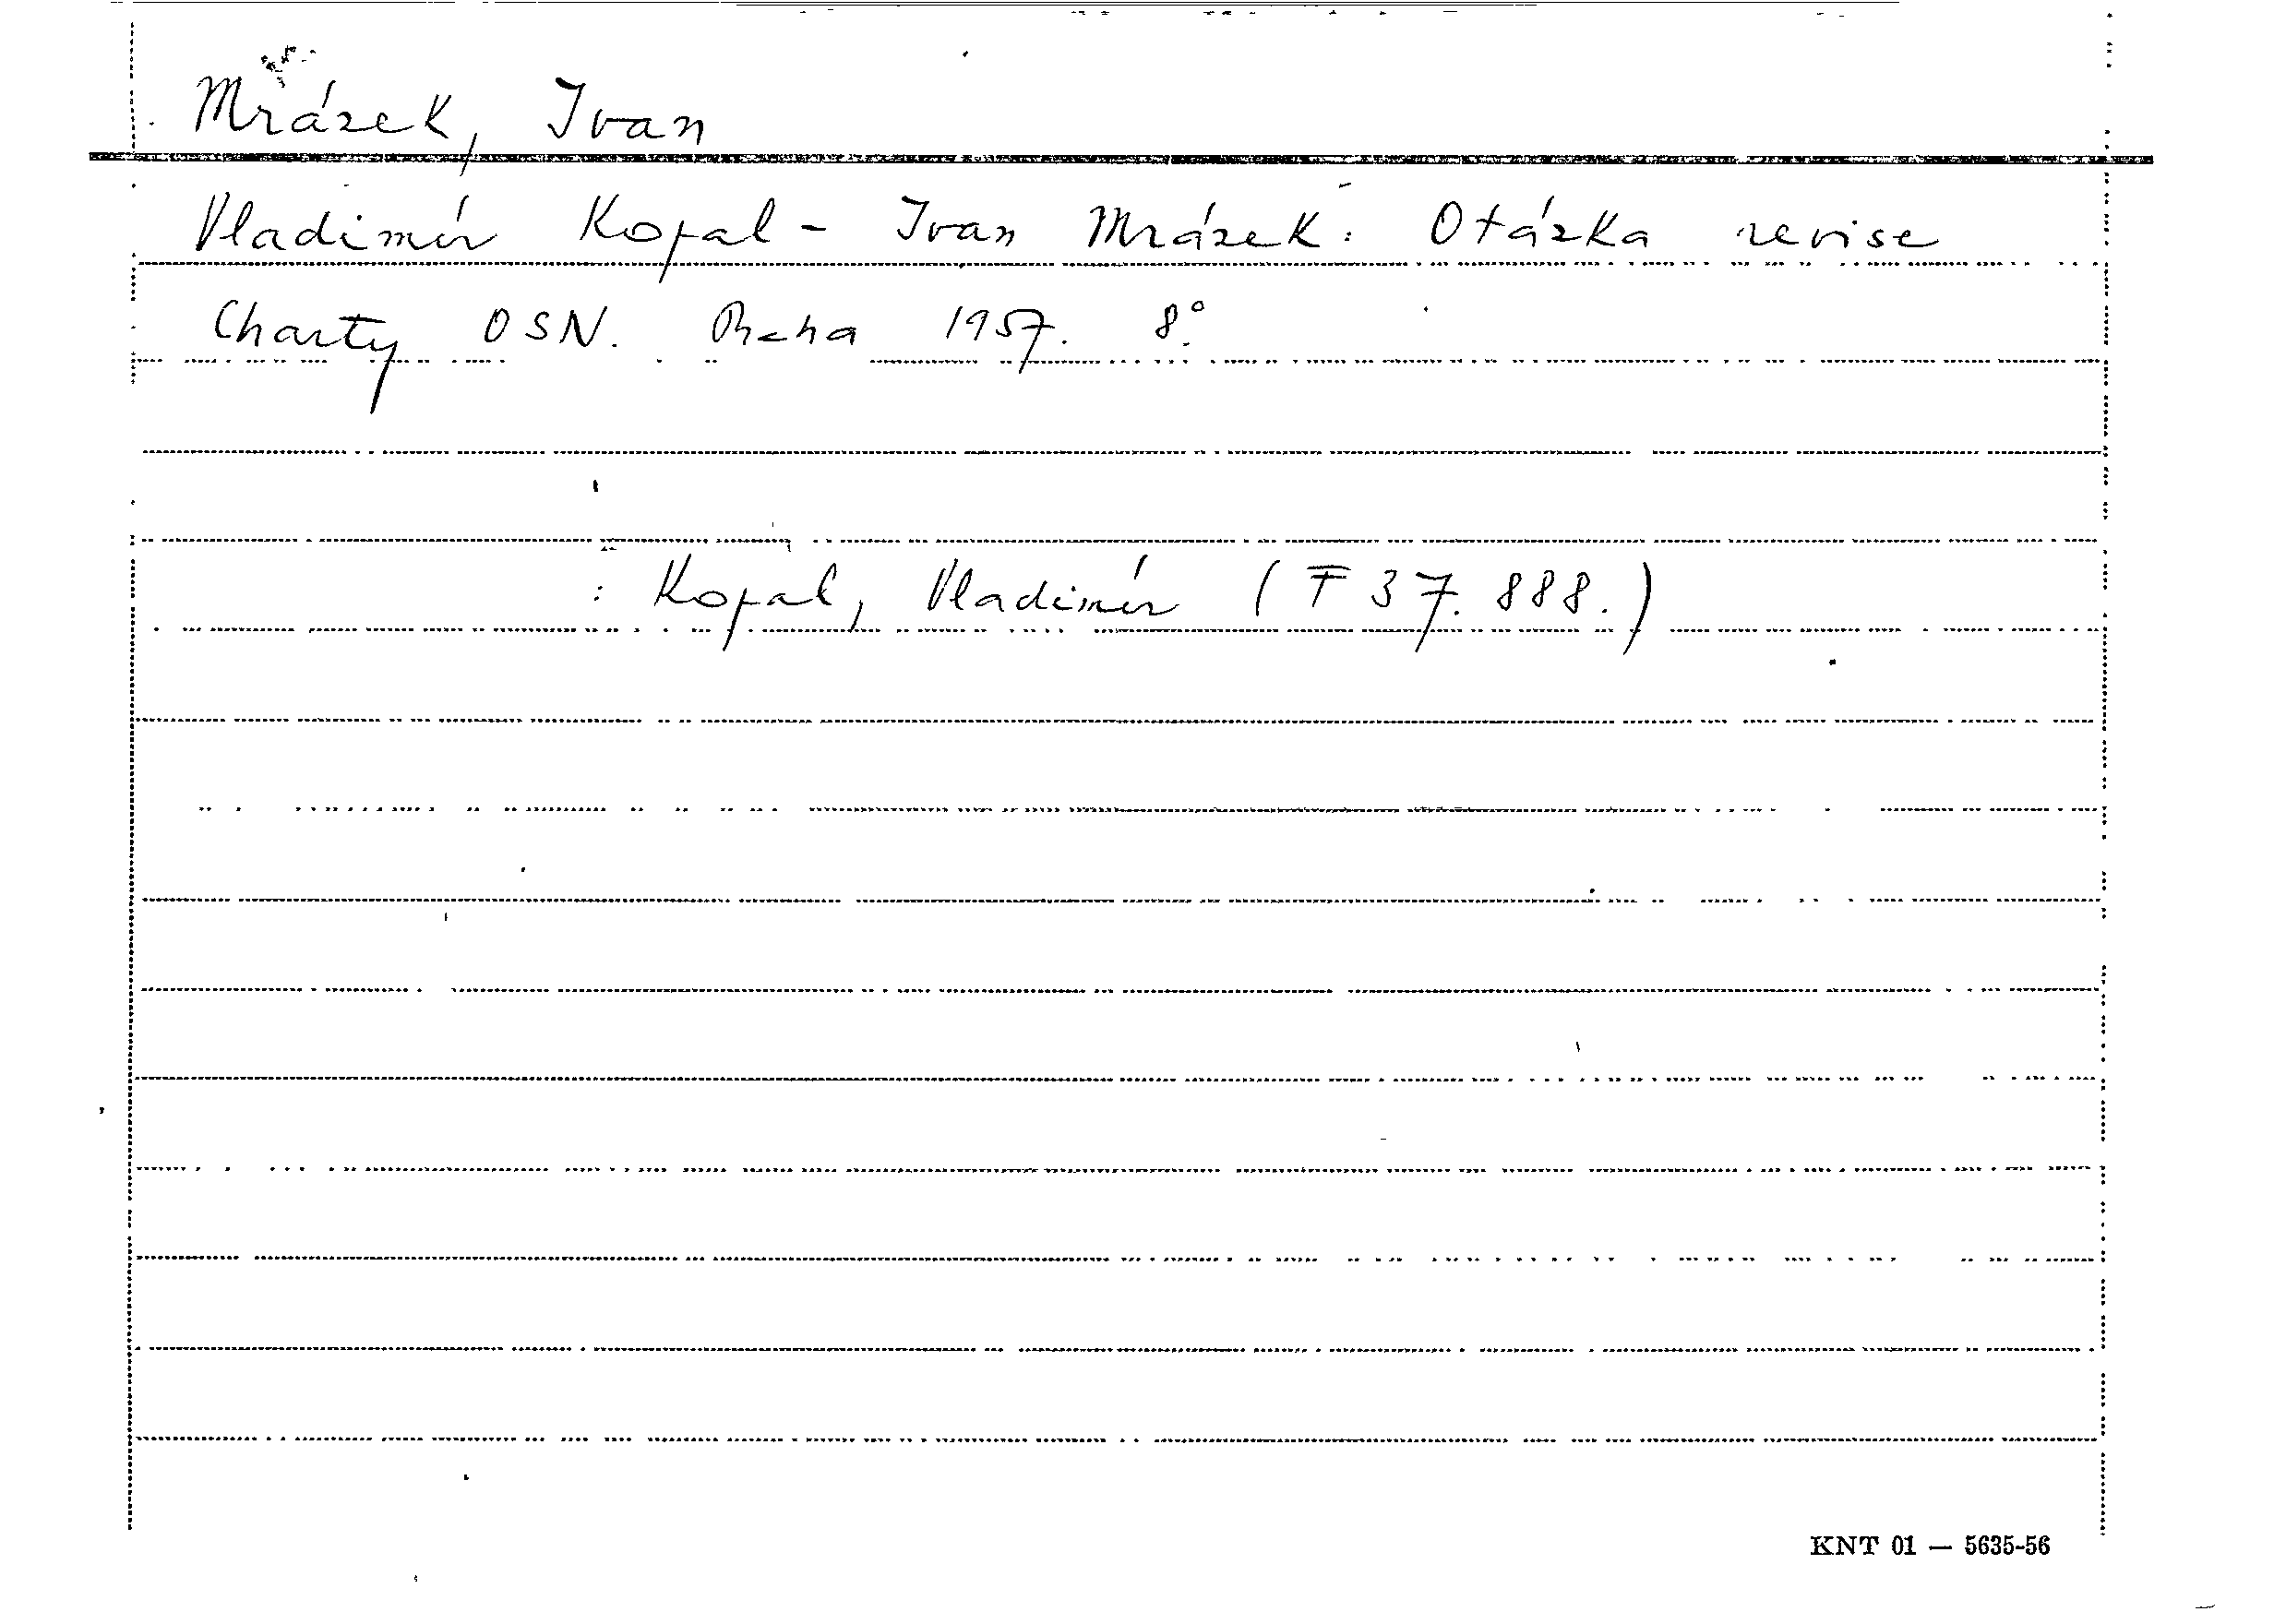 Mrázek, Ivan
Vladimír Kopal - Ivan Mrázek: Otázka revise
Charty OSN. Praha 1957. 8°.
: Kopal, Vladimír (F 37.888.)
KNT 01 — 5635-56